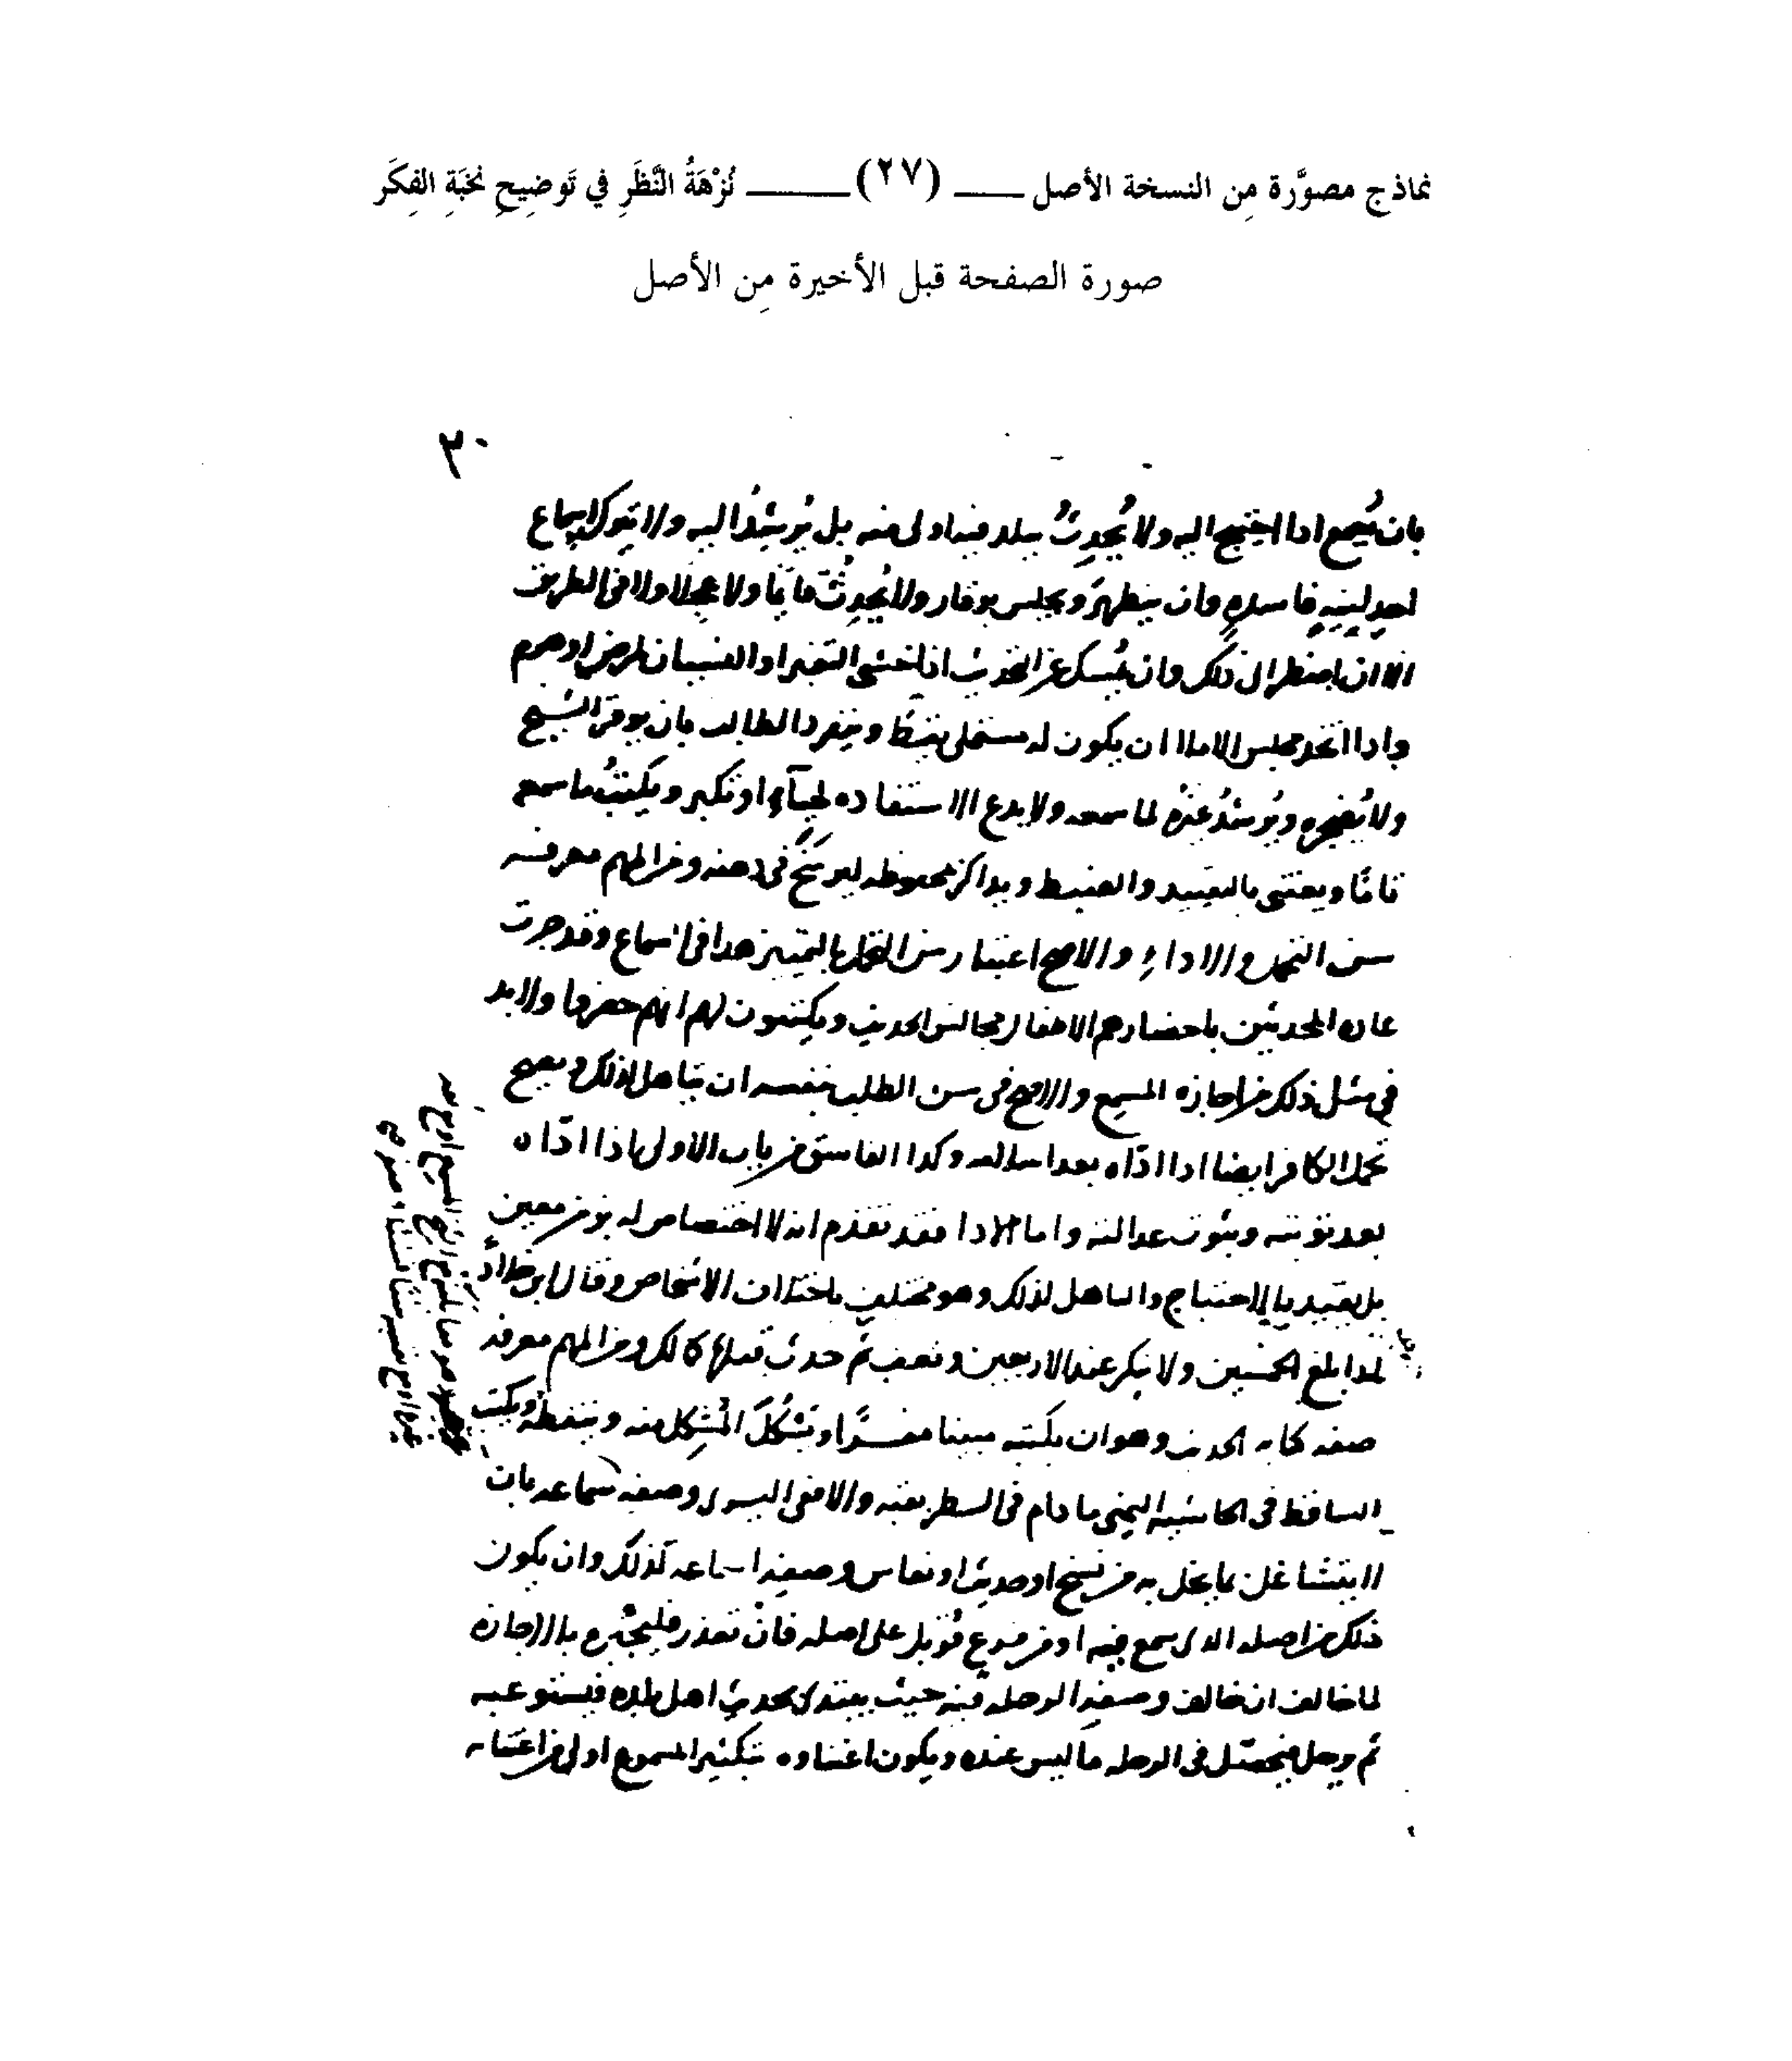 نماذج مصوَّرة مِن النسخة الأصل (٢٧) نُزْهَةُ النَّظَرِ في تَوضِيحِ نخبَةِ الفِكَر
صورة الصفحة قبل الأخيرة مِن الأصل
٣٠
بان يُسمع اذا احتيج اليه ولا يُحدِثُ ببلد فيه اولى منه بل يُرشِدُ اليه ولا يترك اسماع
احدٍ لنيةٍ فاسدةٍ وان يتطهرَ ويجلس بوقار ولا يُحدِثُ قايمًا ولا عجلا ولا في الطريق
الا ان اضطر الى ذلك وان يمسك عن التحديث اذا خشي التغير او النسيان لمرض او هرم
واذا اتخذ مجلس الاملا ان يكون له مستملي يقظ وينفرد الطالب بان يوقر الشيخ
ولا يُضجره ويُرشدُ غيرَهُ لما سمعه ولا يدع الاستفاده لحيآءٍ او تكبر ويكتبُ ما سمعه
تامًا ويعتني بالتقييد والضبط ويذاكر بمحفوظه ليرسخَ في ذهنه ومن المهم معرفه
سن التحمل والاداءِ والاصح اعتبار سن التحمل بالتمييز هذا في السماع وقد جرت
عاده المحدثين باحضارهم الاطفال مجالس الحديث ويكتبون لهم انهم حضروا ولا بد
في مثل ذلك من اجازه المسمع والاصح في سن الطلب بنفسه ان يتاهل لذلك ويصح
تحمل الكافر ايضا اذا ادّاه بعد اسلامه وكذا الفاسق من باب الاولى اذا ادّاه
بعد توبته وثبوت عدالته واما الادا فقد تقدم انه لا اختصاص له بزمن معين
بل يقيد بالاحتياج والتاهل لذلك وهو مختلف باختلاف الاشخاص وقال ابن خلاد
اذا بلغ الخمسين ولا ينكر عند الاربعين وتعقب بمن حدث قبلها كمالك ومن المهم معرفه
صفه كتابه الحديث وهو ان يكتبه مبينا مفسرًا ويَشْكُلَ المُشكِل منه وينقطه ويكتب
الساقط في الحاشيه اليمنى ما دام في السطر بقيه والا ففي اليسرى وصفه سماعه بان
لا يتشاغل بما يخل به من نسخ او حديث او نعاس وصفه اسماعه كذلك وان يكون
ذلك من اصله الذي سمع فيه او من فرع قُوبل على اصله فان تعذر فليجبره بالاجازه
لما خالف ان خالف وصفه الرحله فيه حيث يبتدئ بحديث اهل بلده فيستوعبه
ثم يرحل فيحصل في الرحله ما ليس عنده ويكون اعتناوه بتكثير المسموع اولى من اعتنايه